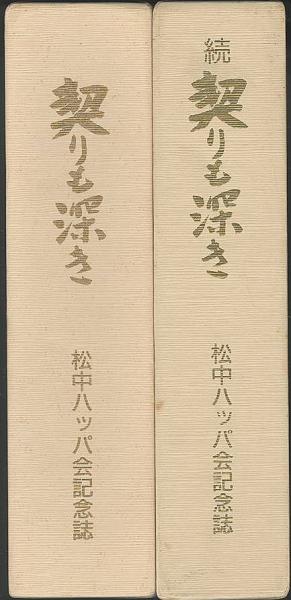 契りも深き
松中ハッパ会記念誌
続
契りも深き
松中ハッパ会記念誌